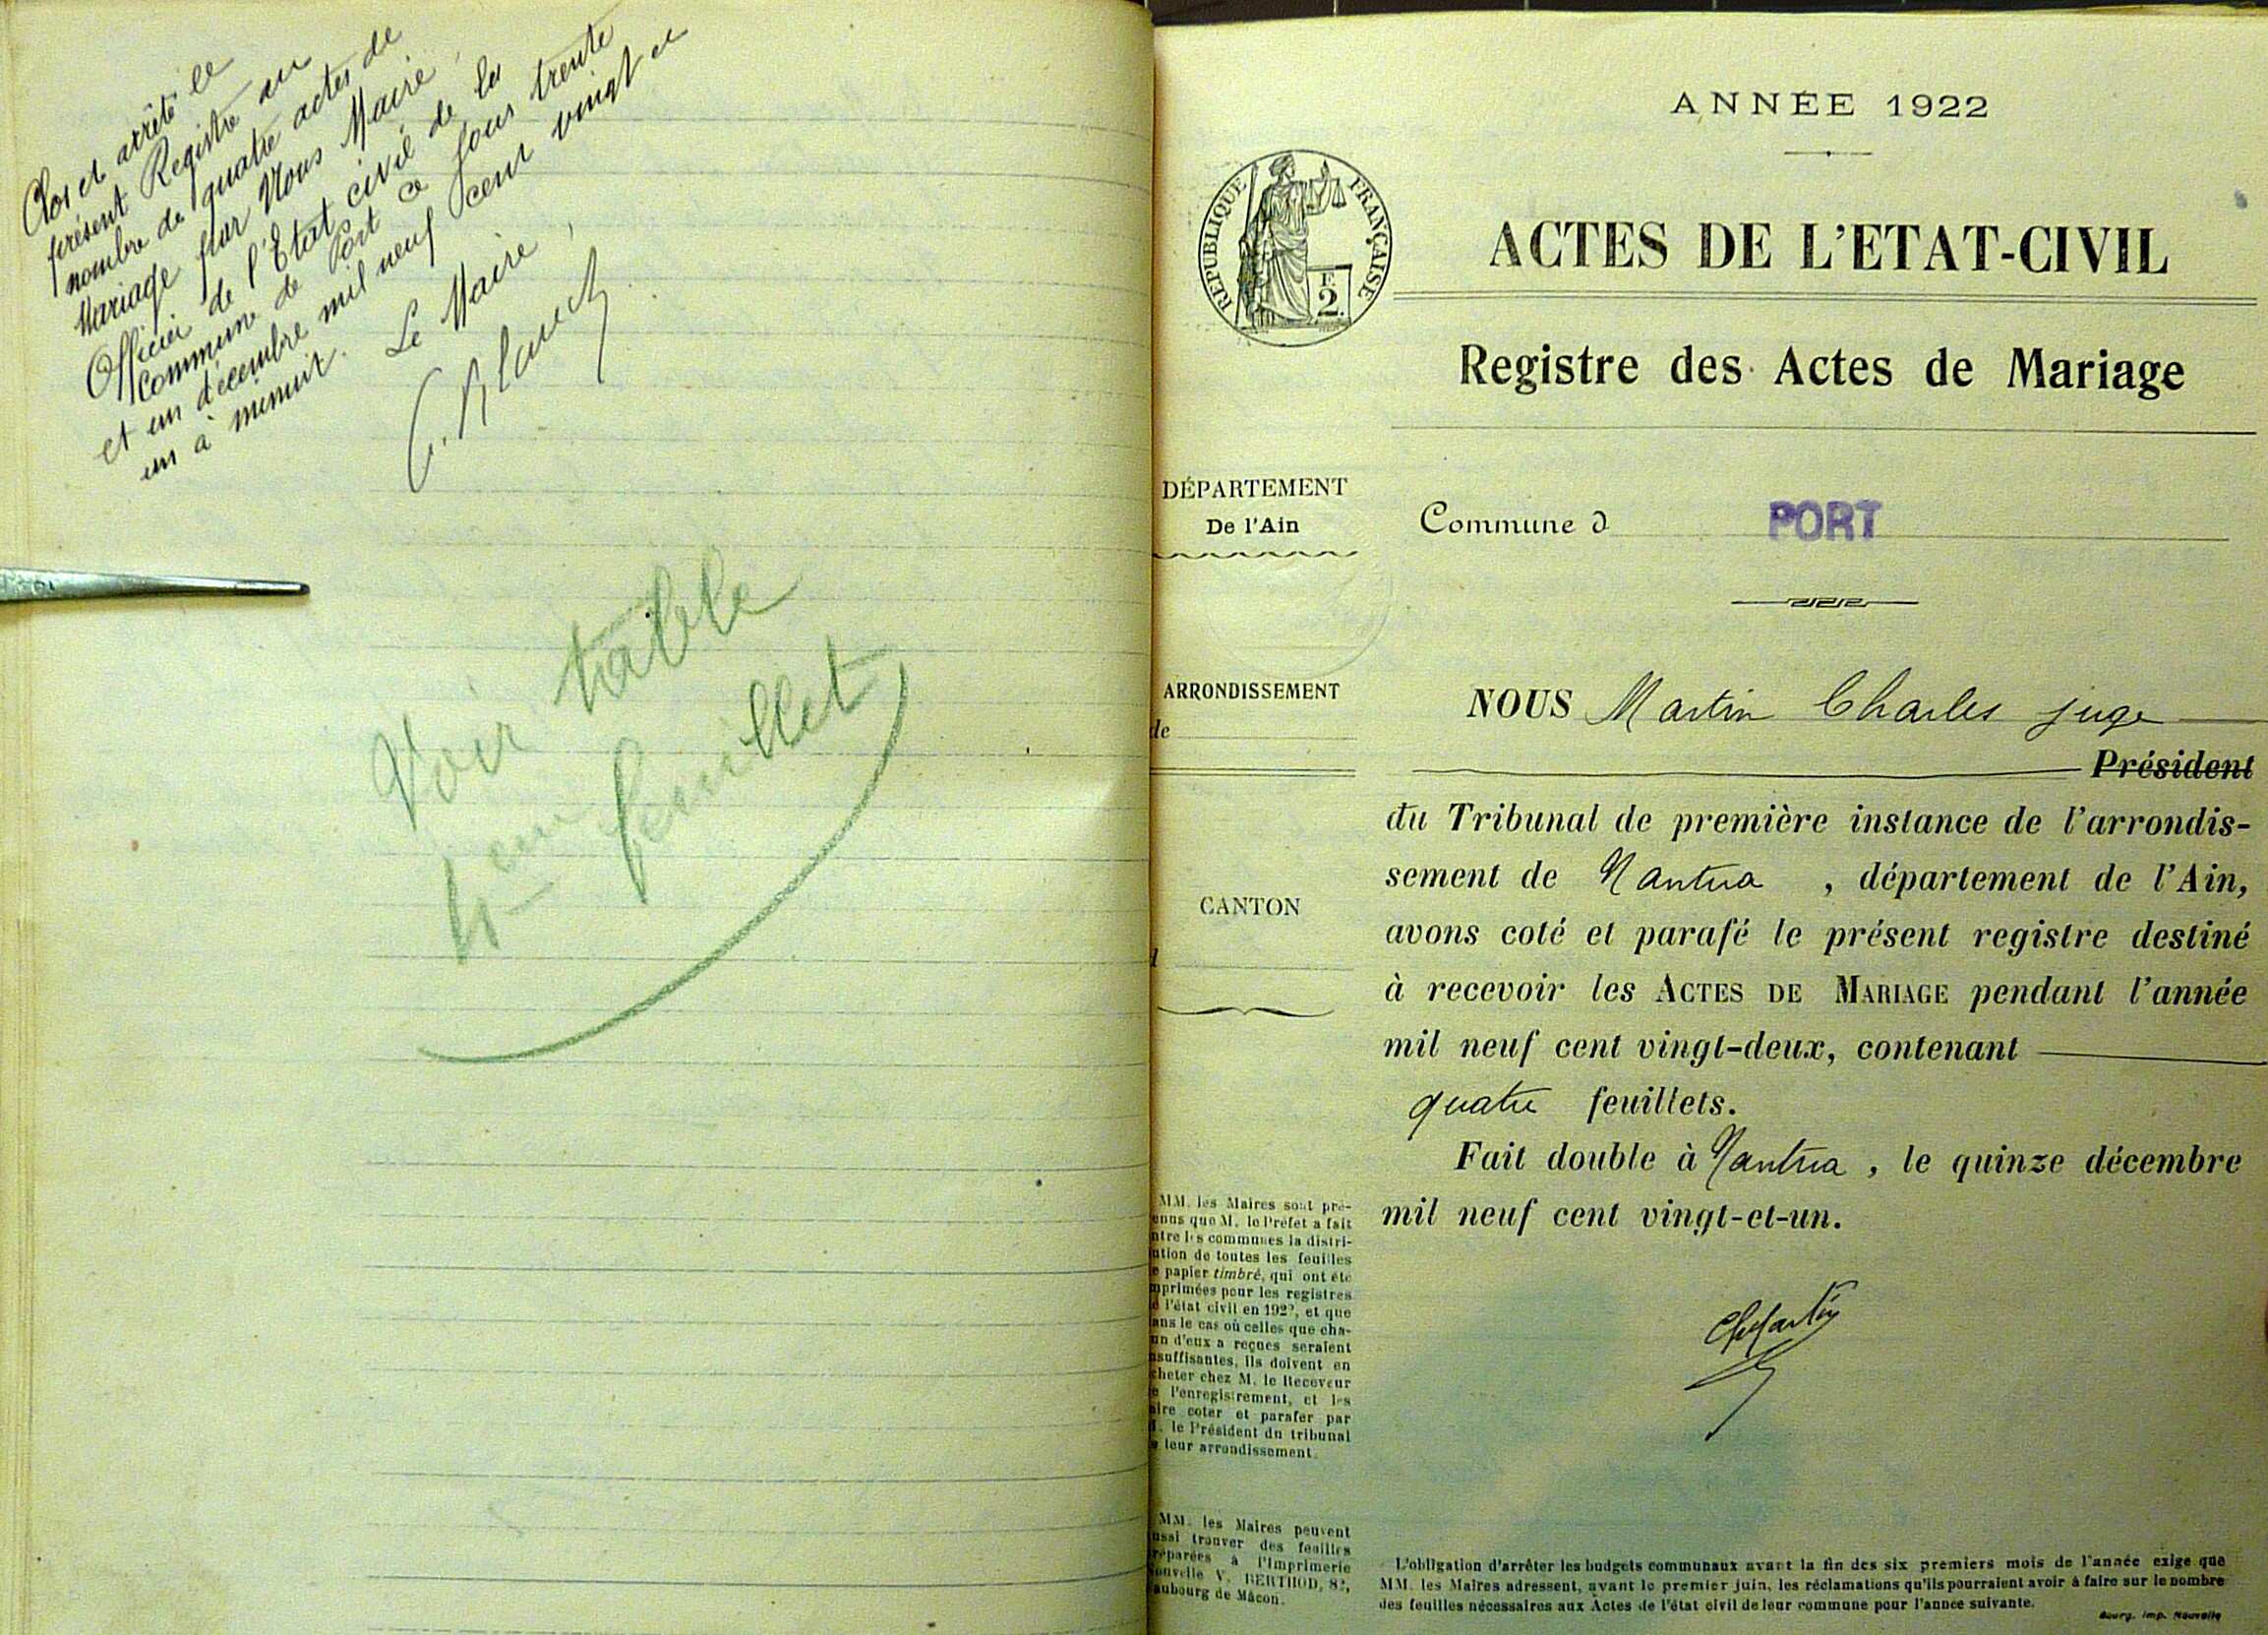 Clos et arrêté le
présent Registre au
nombre de quatre actes de
Mariage par Nous Maire,
Officier de l'Etat civil de la
Commune de Port ce jour trente
et un décembre mil neuf cent vingt et
un à minuit.
Le Maire,
Voir table
4ème feuillet
ANNÉE 1922
REPUBLIQUE FRANÇAISE
F
2.
ACTES DE L'ETAT-CIVIL
Registre des Actes de Mariage
DÉPARTEMENT
De l'Ain
Commune d PORT
ARRONDISSEMENT
de
CANTON
NOUS Martin Charles juge
Président
du Tribunal de première instance de l'arrondis-
sement de Nantua, département de l'Ain,
avons coté et parafé le présent registre destiné
à recevoir les ACTES DE MARIAGE pendant l'année
mil neuf cent vingt-deux, contenant
quatre feuillets.
Fait double à Nantua, le quinze décembre
mil neuf cent vingt-et-un.
ChMartin
MM. les Maires sont pré-
enus que M. le Préfet a fait
ntre les communes la distri-
ution de toutes les feuilles
e papier timbré, qui ont été
mprimées pour les registres
e l'état civil en 1922, et que
ans le cas où celles que cha-
un d'eux a reçues seraient
nsuffisantes, ils doivent en
cheter chez M. le Receveur
e l'enregistrement, et les
aire coter et parafer par
M. le Président du tribunal
e leur arrondissement.
MM. les Maires peuvent
ussi trouver des feuilles
réparées à l'Imprimerie
ouvelle V. BERTHOD, 8,
aubourg de Mâcon.
L'obligation d'arrêter les budgets communaux avant la fin des six premiers mois de l'année exige que
MM. les Maires adressent, avant le premier juin, les réclamations qu'ils pourraient avoir à faire sur le nombre
des feuilles nécessaires aux Actes de l'état civil de leur commune pour l'année suivante.
Bourg, Imp. Nouvelle